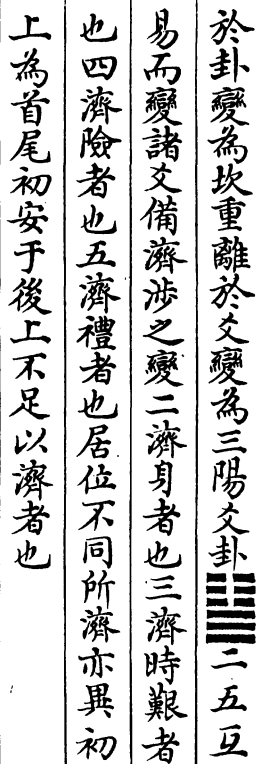 於卦變為坎重離於爻變為三陽爻卦䷊二五互
易而變諸爻備濟涉之變二濟身者也三濟時艱者
也四濟險者也五濟禮者也居位不同所濟亦異初
上為首尾初安于後上不足以濟者也